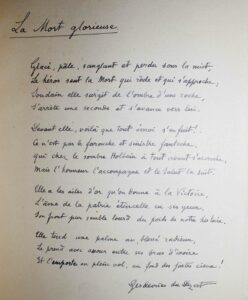 La Mort glorieuse
Glacé, pâle, sanglant et perdu sous la nuit.
Le héros sent la Mort qui rôde et qui s'approche,
Soudain elle surgit de l'ombre d'une roche,
S'arrête une seconde et s'avance vers lui.
Devant elle, voilà que tout émoi s'enfuit!
Ce n'est pas la farouche et sinistre fauche,
qui chez le sombre Holbein à tout vivant s'accroche,
Mais l'honneur l'accompagne et le Salut la suit.
Elle a les ailes d'or qu'on donne à la Victoire,
L'âme de la patrie étincelle en ses yeux,
Son front pur semble lourd du poids de notre histoire.
Elle tend une palme au blessé radieux,
Le prend avec amour entre ses bras d'ivoire
Et l'emporte en plein vol, au fond des justes cieux!